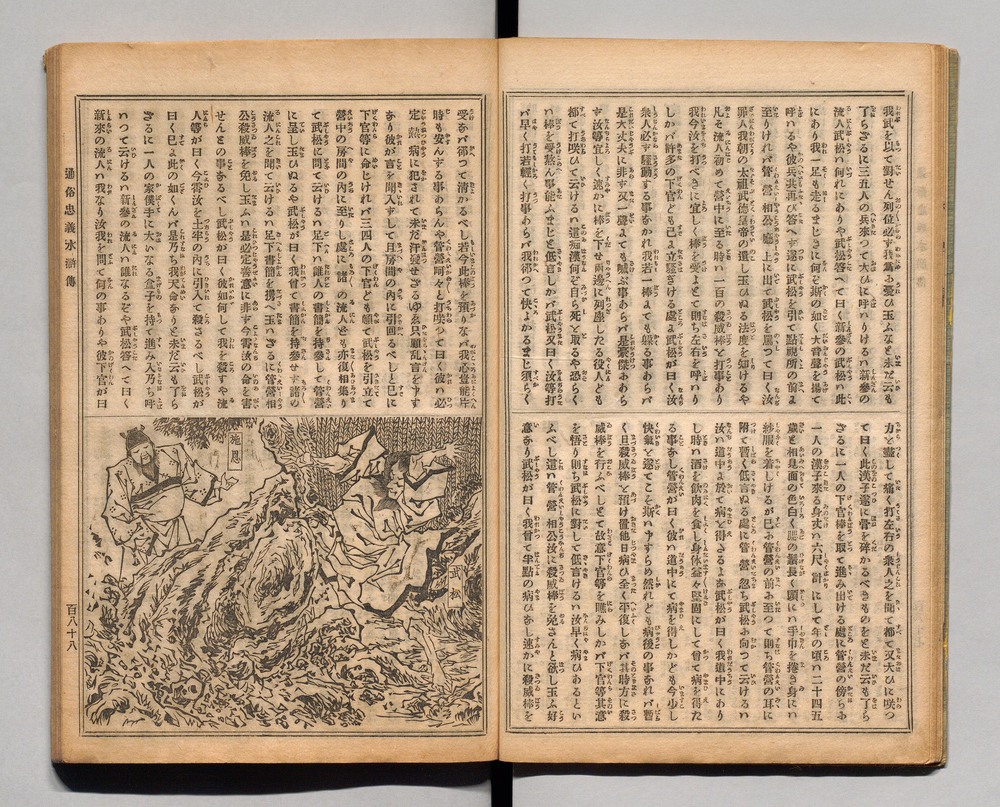 我武を以て對せん列位必ず我爲に憂ひ玉ふなと未だ云も
了らざるに三五人の兵來つて大ひに呼ハりけるハ新參の
流人武松ハ何れにありや武松答へて曰く新參の武松ハ此
にあり我一足も走るまじきに何を斯の如く大音聲を揚て
呼ハるや彼兵其再び答へず遂に武松を引て點視所の前に
至りけれバ管營相公廳上に出て武松を罵つて曰く汝
罪人我朝の太祖武德皇帝の遺し玉ひぬる法度を知けるや
凡そ流人初めて營中に至る時ハ一百の殺威棒と打事あり
我今汝を打べきに宜しく棒を受よとて則ち左右を呼ハり
しかバ許多の下官ども已に立騷ぎける處に武松が曰く汝
衆人必ず騷動する事なかれ我若一棒までも躱る事あらバ
是大丈夫に非ず又一聲までも喊ぶ事あらバ是豪傑にあら
ず汝等宜しく速かに棒を下せ兩邊に列座したる役人ども
都て打咲ひて云けるハ這痴漢何ぞ自ら死と取るや恐らく
ハ棒を受熬ん事能ふまじと低言しかバ武松又曰く汝等打
バ早く打若輕く打事あらバ我却つて快よかるまじ須らく
力と盡して痛く打左右の衆人之を聞て都て又大ひに咲つ
て曰く此漢子遂に骨を碎かるべきものをと未だ云も了ら
ざるに一人の下官棒を取て進み出ける處に管營の傍らに
一人の漢子來る身丈ハ六尺計にして年の頃ハ二十四五
歲と相見面の色白く腮の鬚長く頭にハ手巾を捲き身にハ
紗服を着しけるが已に管營の前に至つて則ち管營の耳に
附て暫く低言ぬる處に管營忽ち武松に向つて云けるハ
汝ハ道中に於て病と得ざるよな武松が曰く我道中にあり
し時ハ酒を飮肉を食し身体益々堅固にして曾て病を得た
る事なし管營が曰く彼ハ道中にて病を得しかども今少し
快氣を遂てこそ斯ハ申すらめ然れども病後の事なれバ暫
く旦殺威棒と預け置他日病ひ全く平復しなバ其時方に殺
威棒を行ふべしとて故意下官等を瞧みしかバ下官等其意
を悟り則ち武松に對して低言けるハ汝早く病ひあるとい
ふべし這ハ管營相公汝に殺威棒を免さんと欲し玉ふ好
意なり武松が曰く我曾て半點の病ひなし速かに殺威棒を
受なバ却つて淸かるべし若今此棒を預りなバ我心裡片
時も安んずる事あらんや管營呵々と打咲つて曰く彼ハ必
定熱病に犯されて未だ汗發せざるゆゑ只顧亂言を申す
なり彼が言を聞入ずして且房間の内に引回るべしと已に
下官等に命じけれバ三四人の下官ども頓て武松を引立て
營中の房間の内に至りし處に諸の流人ども亦復相集り
て武松に問て云けるハ足下ハ誰人の書簡を持參して管營
に呈し玉ひぬるや武松が曰く我曾て書簡を持參せず諸の
流人之を聞て云けるハ足下書簡を携へ玉ハざるに管營相
公殺威棒を免し玉ふハ是必定善意に非ず今霄汝の命を害
せんとの事なるべし武松が曰く彼如何して我を殺すや流
人等が曰く今霄汝を土牢の内に引入て殺さるべし武松が
曰く已に此の如くんバ是乃ち我天命なりと未だ云も了ら
ざるに一人の家僕手に大いなる盒子を持て進み入乃ち呼
ハつて云けるハ新參の流人ハ誰なるぞや武松答へて曰く
新來の流人ハ我なり汝我を問て何の事ありや彼下官が曰
施恩
武松
通俗忠義水滸傳
百八十八